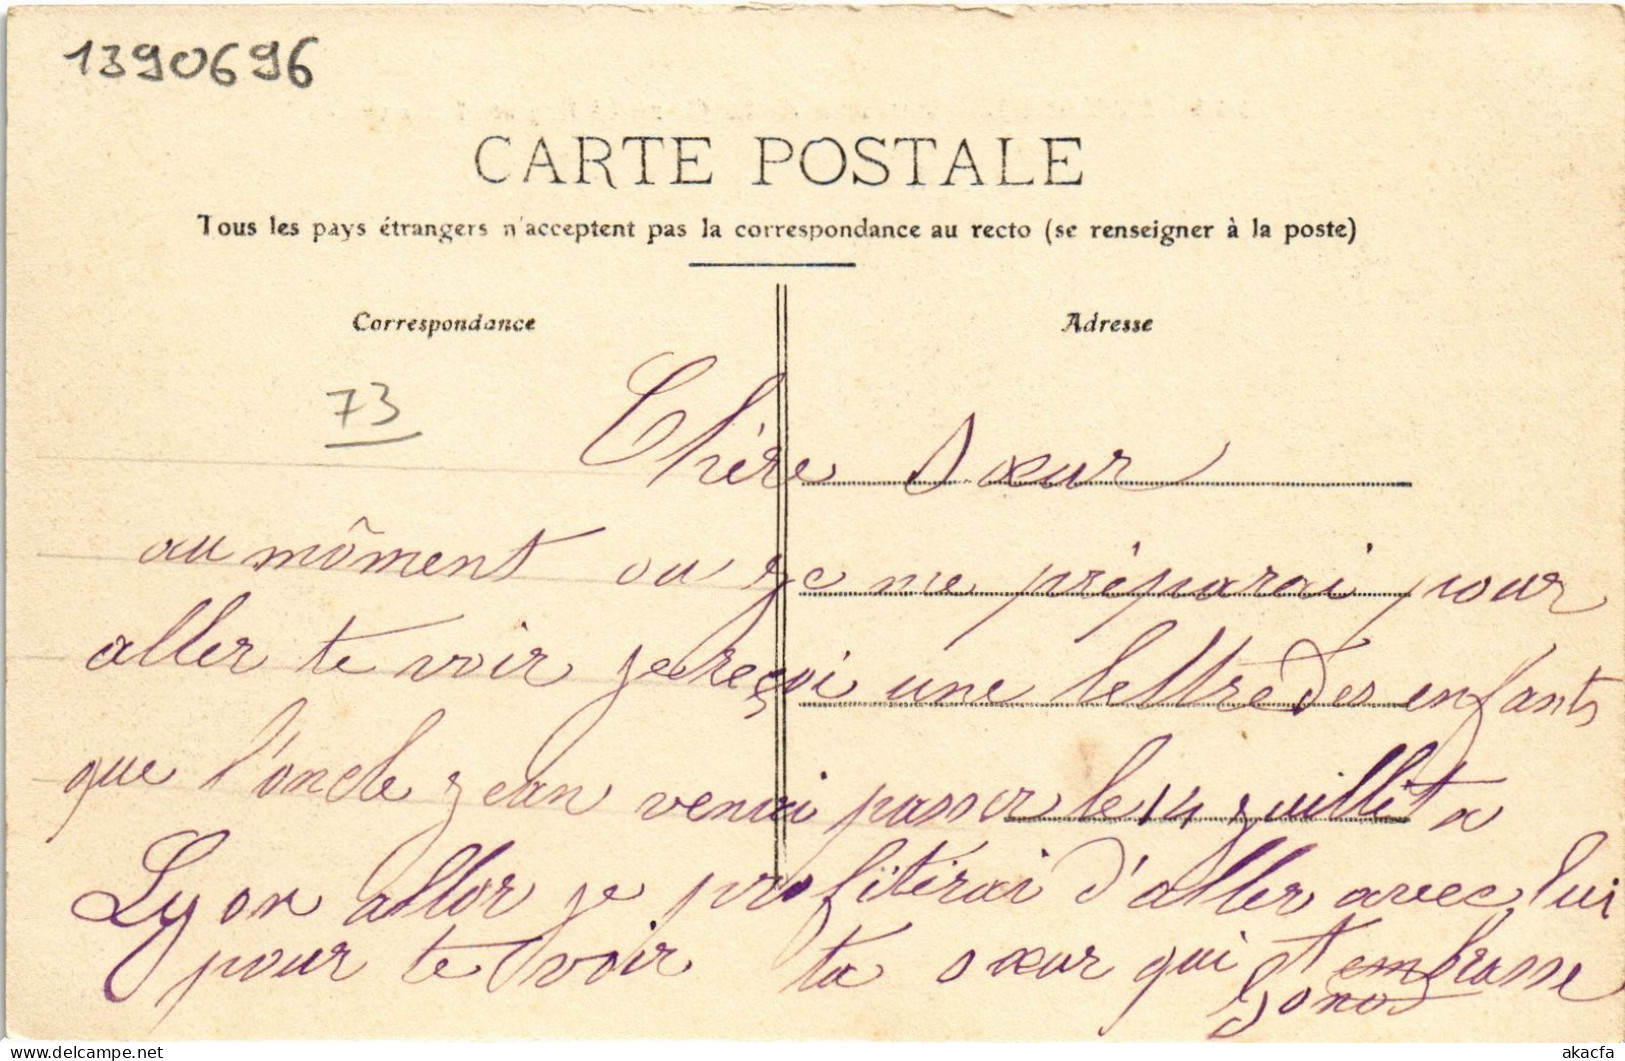 1390696
CARTE POSTALE
Tous les pays étrangers n'acceptent pas la correspondance au recto (se renseigner à la poste)
Correspondance
Adresse
73
Chère Sœur
au môment ou je me préparai pour
aller te voir je reçoi une lettre des enfants
que l'oncle jean venai passer le 14 juillet a
Lyon allor je profiterai d'aller avec lui
pour te voir ta sœur qui t'embrasse
akacfa